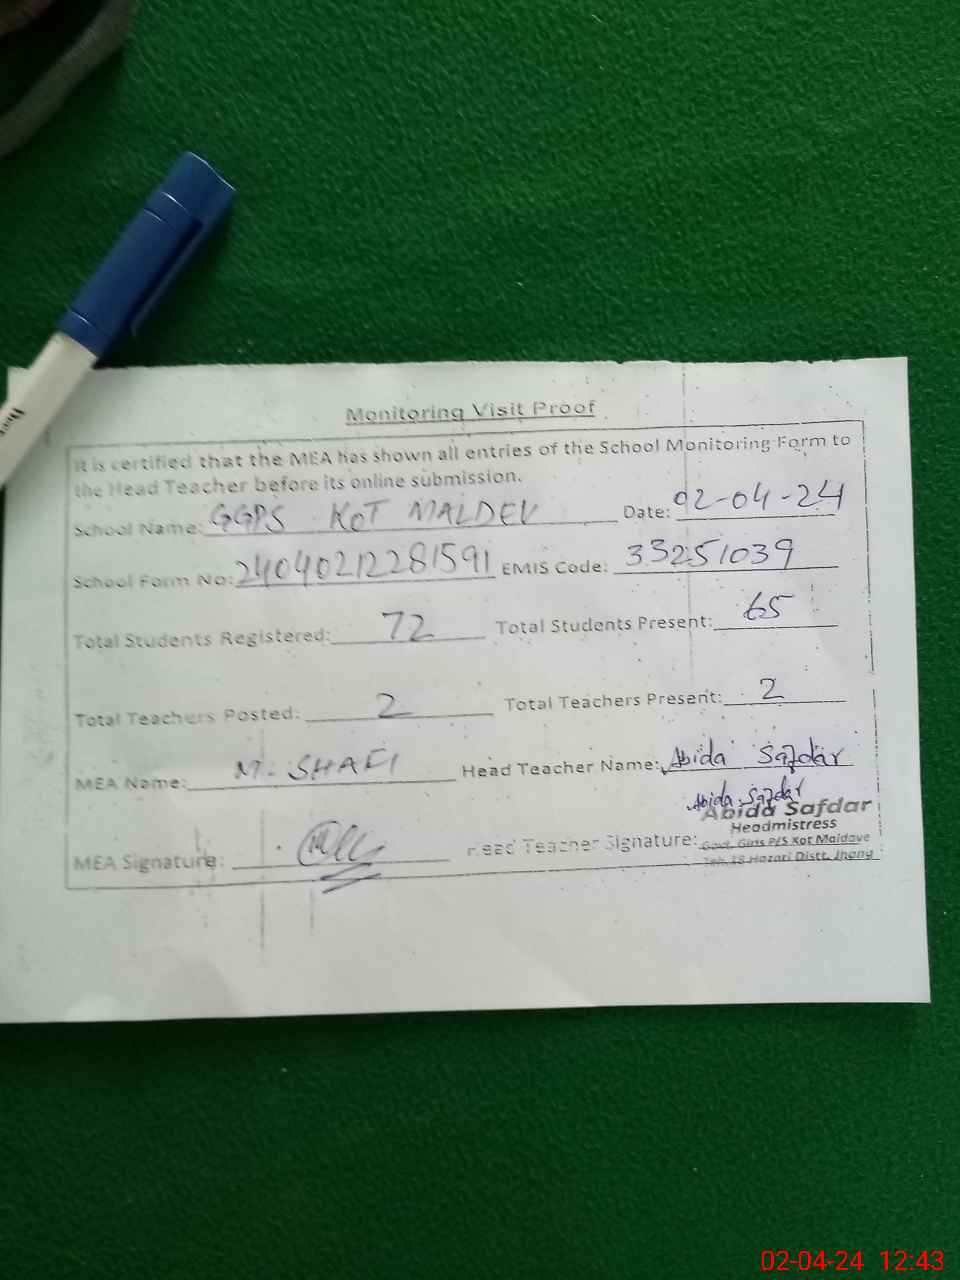 Monitoring Visit Proof
It is certified that the MEA has shown all entries of the School Monitoring Form to
the Head Teacher before its online submission.
School Name: GGPS KOT MALDEV Date: 02-04-24
School Form No: 24040212281591 EMIS Code: 33251039
Total Students Registered: 72 Total Students Present: 65
Total Teachers Posted: 2 Total Teachers Present: 2
MEA Name: M. SHAFI Head Teacher Name: Abida Safdar
Abida Safdar
Abida Safdar
Headmistress
MEA Signature: Head Teacher Signature: Govt. Girls P/S Kot Maldave
Teh. 18-Hazari Distt. Jhang
02-04-24 12:43